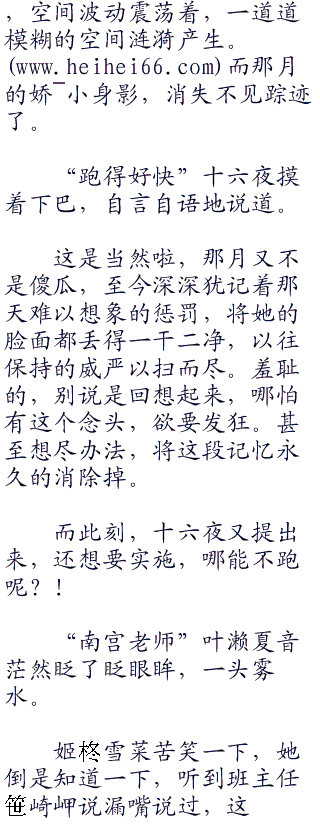 ，空间波动震荡着，一道道
模糊的空间涟漪产生。
(www.heihei66.com)而那月
的娇¯小身影，消失不见踪迹
了。
“跑得好快”十六夜摸
着下巴，自言自语地说道。
这是当然啦，那月又不
是傻瓜，至今深深犹记着那
天难以想象的惩罚，将她的
脸面都丢得一干二净，以往
保持的威严以扫而尽。羞耻
的，别说是回想起来，哪怕
有这个念头，欲要发狂。甚
至想尽办法，将这段记忆永
久的消除掉。
而此刻，十六夜又提出
来，还想要实施，哪能不跑
呢？！
“南宫老师”叶濑夏音
茫然眨了眨眼眸，一头雾
水。
姬柊雪菜苦笑一下，她
倒是知道一下，听到班主任
笹崎岬说漏嘴说过，这